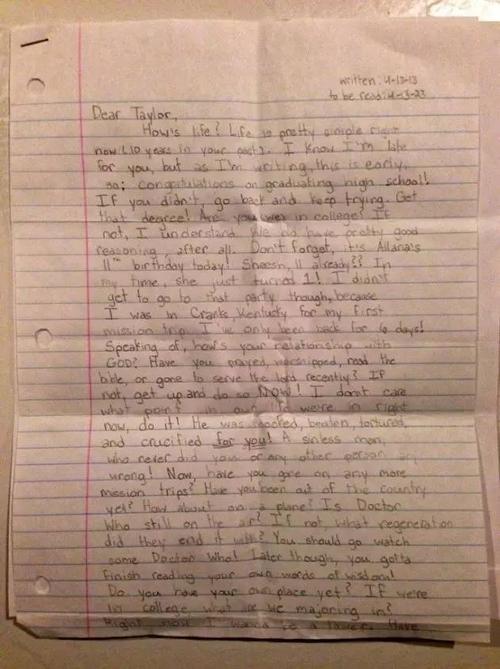 written: 4-13-13
to be read: 4-13-23
Dear Taylor,
How's life? Life is pretty simple right
now (10 years in your past). I know I'm late
for you, but as I'm writing, this is early,
so; congratulations on graduating high school!
If you didn't, go back and keep trying. Get
that degree! Are you in college? If
not, I understand. We do have pretty good
reasoning, after all. Don't forget, it's Allana's
11th birthday today! Sheesh, 11 already?? In
my time, she just turned 1! I didn't
get to go to that party though, because
I was in Cranks, Kentucky for my first
mission trip. I've only been back for 6 days!
Speaking of, how's your relationship with
GOD? Have you prayed, worshipped, read the
bible, or gone to serve the lord recently? If
not, get up and do so NOW! I don't care
what point in our we're in right
now, do it! He was mocked, beaten, tortured,
and crucified for you! A sinless man,
who never did you or any other person any
wrong! Now, have you gone on any more
mission trips? Have you been out of the country
yet? How about on a plane? Is Doctor
Who still on the air? If not, what regeneration
did they end it with? You should go watch
some Doctor Who! Later though, you gotta
finish reading your own words of wisdom!
Do you have your own place yet? If we're
in college, what are we majoring in?
Right now I wanna be a lawyer. Have